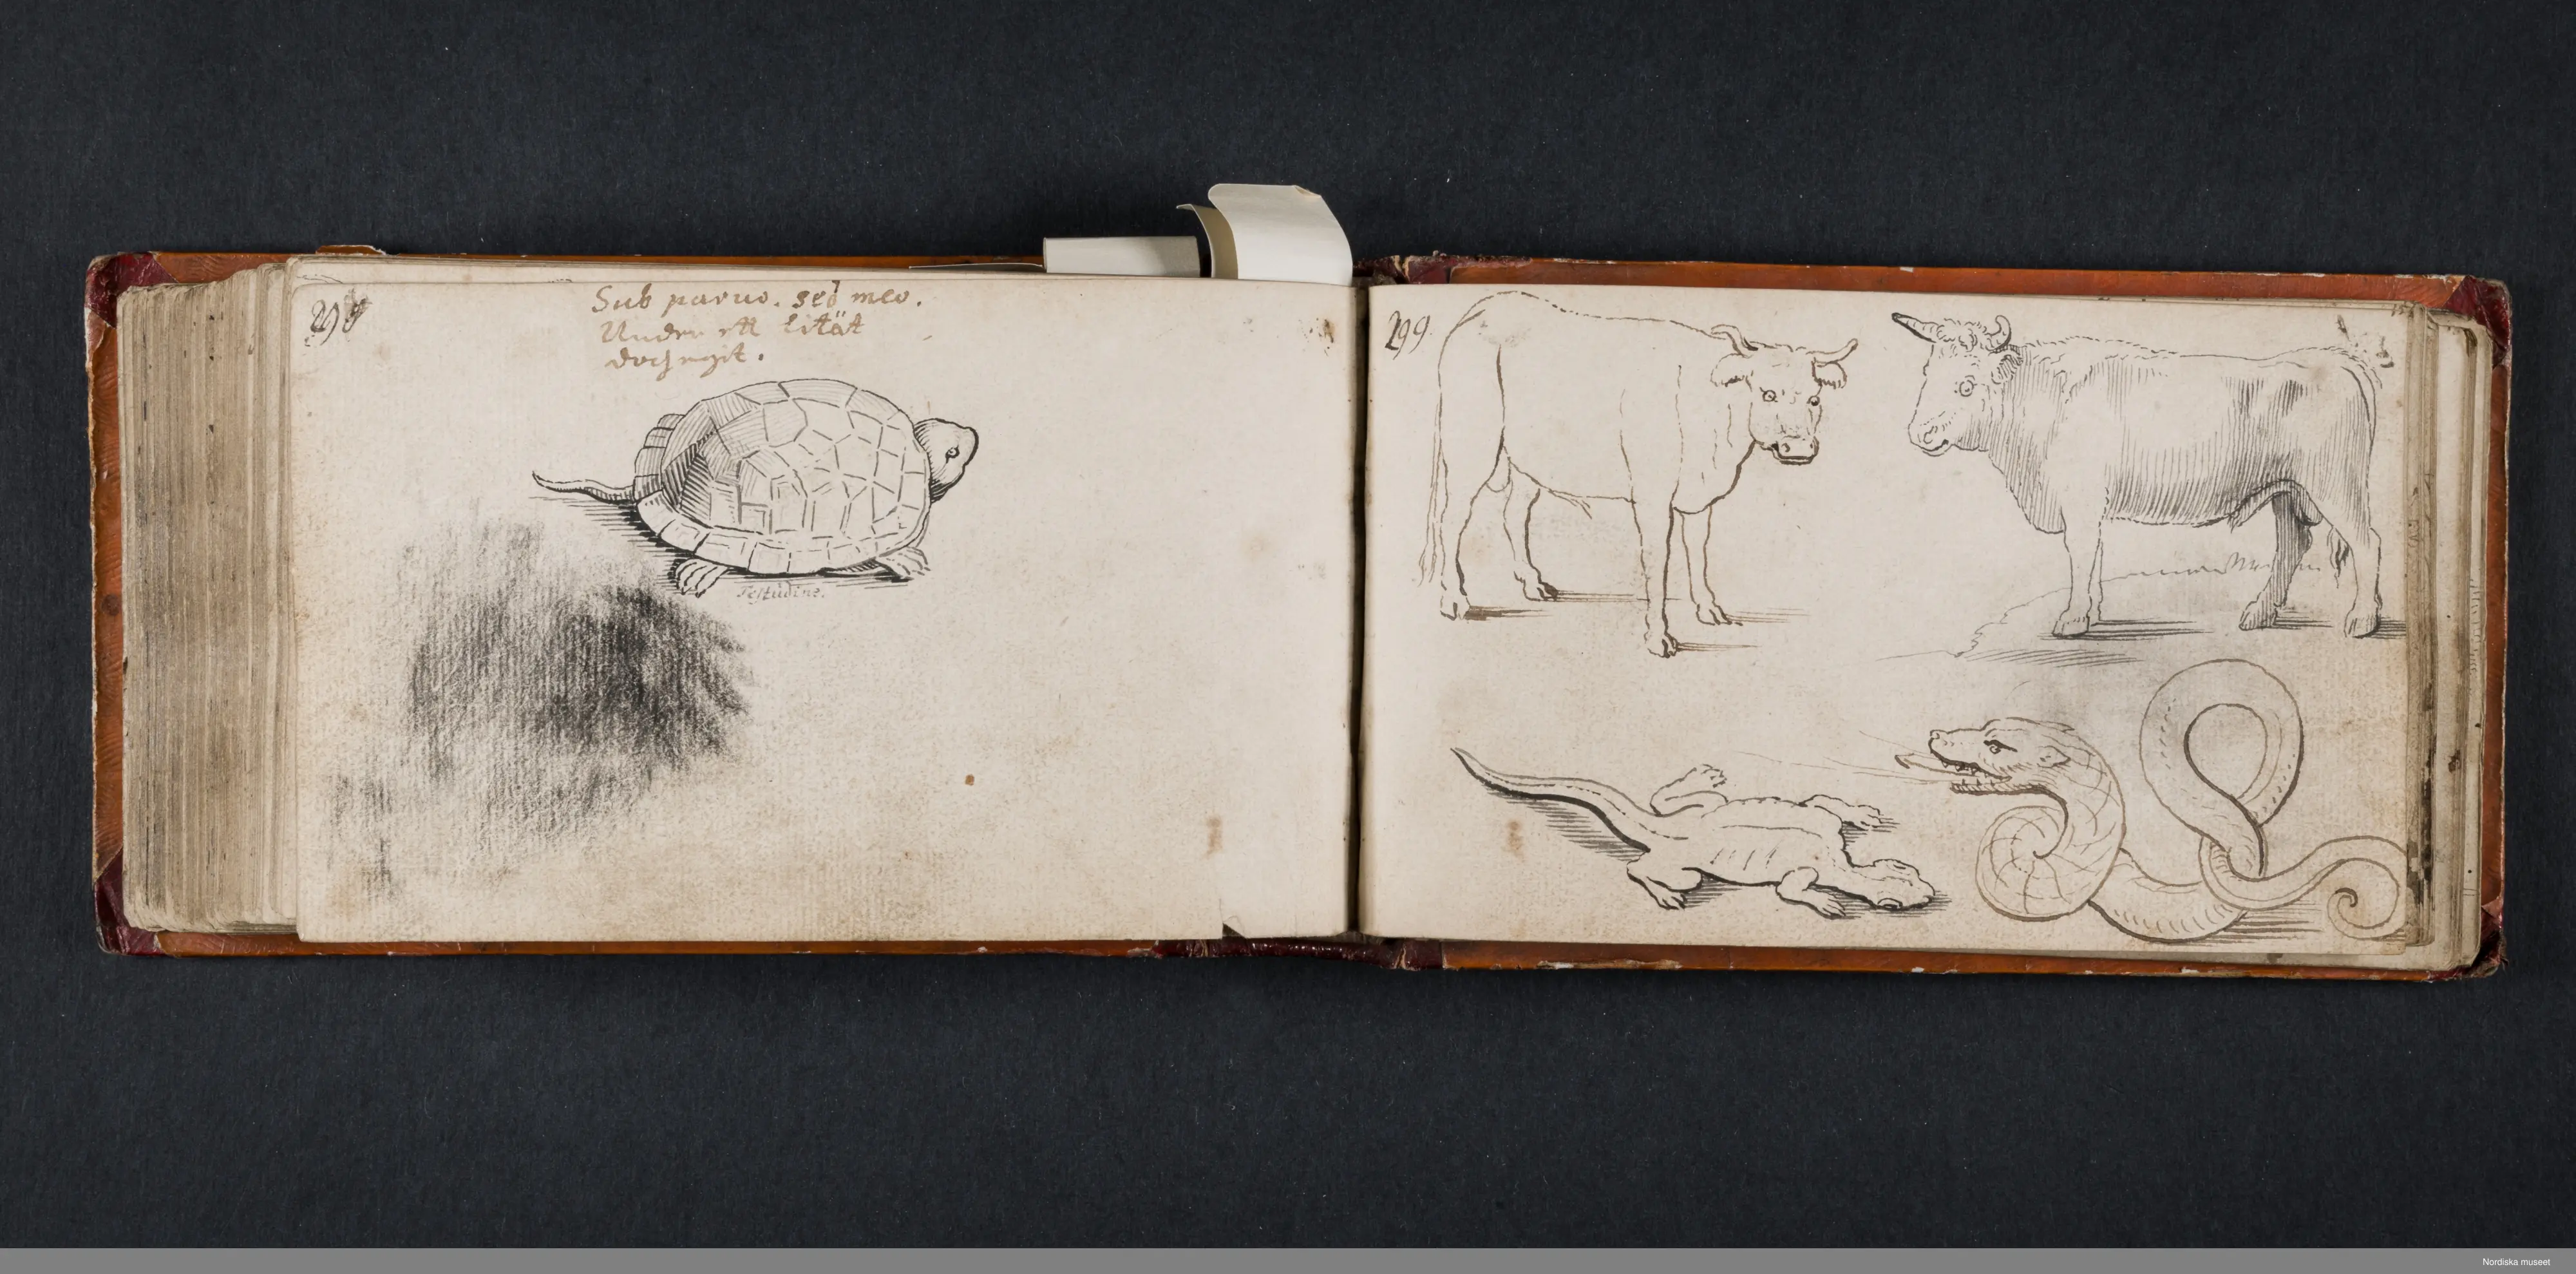 298
Sub paruo. sed meo.
Under ett lität
doch mit.
Testudine.
299.
Nordiska museet